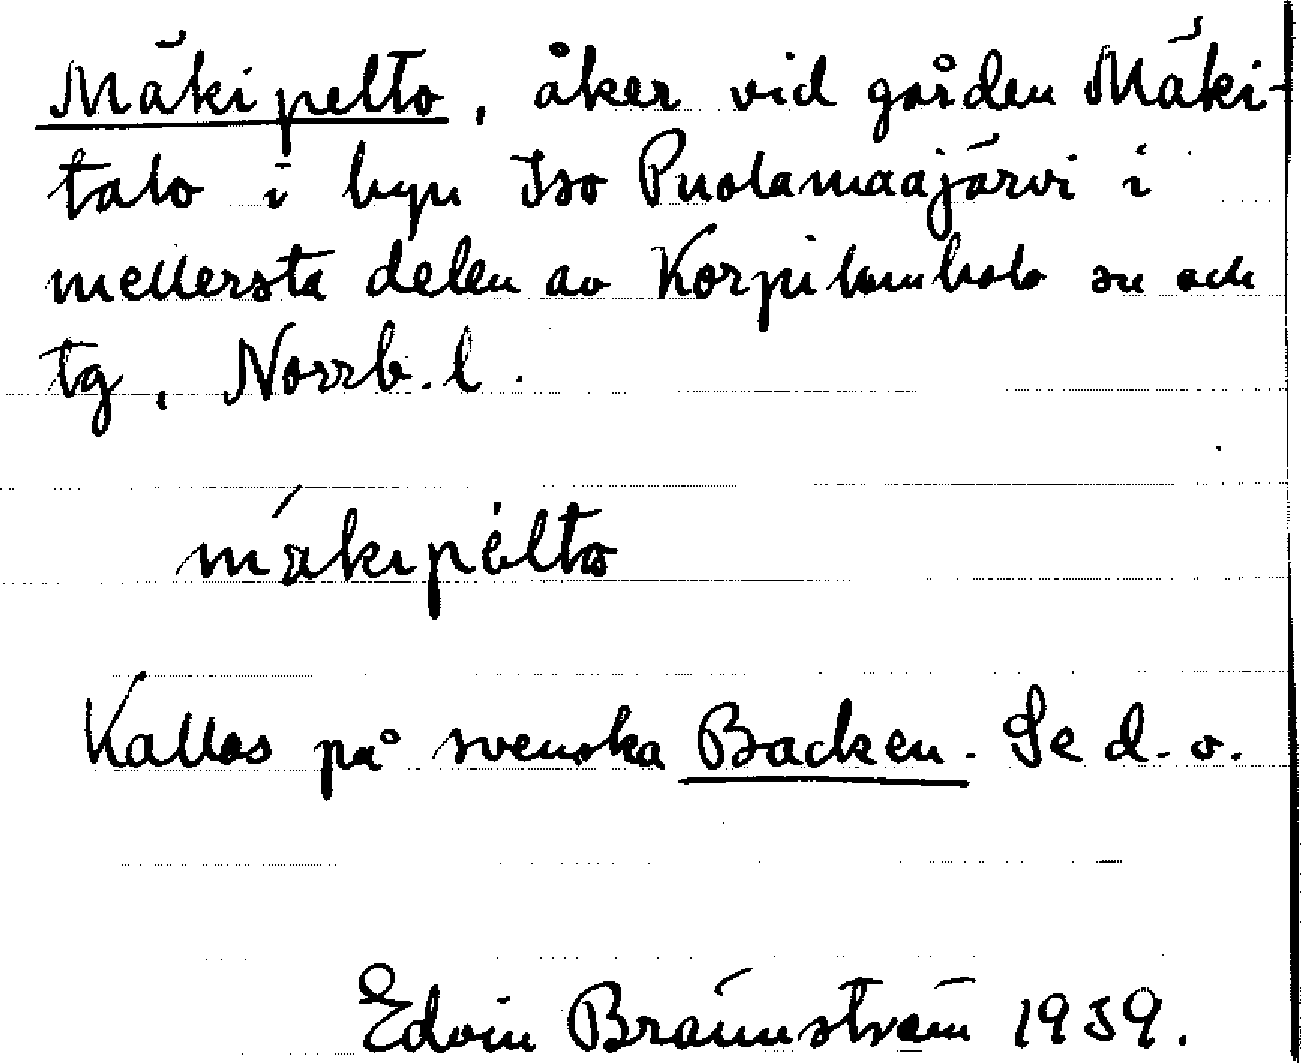 Mäkipelto, åker vid gården Mäki-
talo i byn Iso Puolamaajärvi i
mellersta delen av Korpilombolo sn och
tg, Norrb. l.
mäkipèlto
Kallas på svenska Backen. Se d. o.
Edvin Brännström 1959.